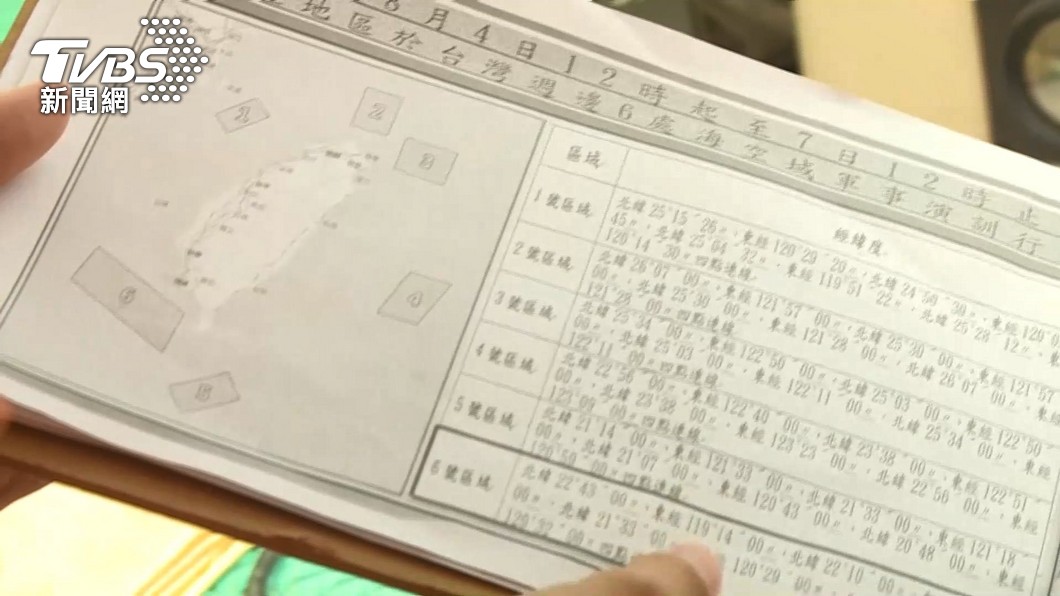 TVBS
新聞網
8月4日12時起至7日12時止
地區於台灣週邊6處海空域軍事演訓行
區域
經緯度
1號區域
北緯25°15′26〃、東經120°29′20〃,北緯24°50′30〃、東經120°0
45〃,北緯25°04′32〃、東經119°51′22〃,北緯25°28′12〃、東
120°14′30〃四點連線
2號區域
北緯26°07′00〃、東經121°57′00〃,北緯25°30′00〃、東經121°57
00〃,北緯25°30′00〃、東經121°28′00〃,北緯26°07′00〃、東經
121°28′00〃四點連線
3號區域
北緯25°34′00〃、東經122°50′00〃,北緯25°03′00〃、東經122°50
00〃,北緯25°03′00〃、東經122°11′00〃,北緯25°34′00〃、東經
122°11′00〃四點連線
4號區域
北緯22°56′00〃、東經122°40′00〃,北緯23°38′00〃、東經122°51
00〃,北緯23°38′00〃、東經123°23′00〃,北緯22°56′00〃、東經
123°09′00〃四點連線
5號區域
北緯21°14′00〃、東經121°33′00〃,北緯21°33′00〃、東經121°18
00〃,北緯21°07′00〃、東經120°43′00〃,北緯20°48′00〃、東經
120°59′00〃四點連線
6號區域
北緯22°43′00〃、東經119°14′00〃,北緯22°10′00〃、東經
00〃,北緯21°33′00
120°32′00〃四點
120°29′00〃